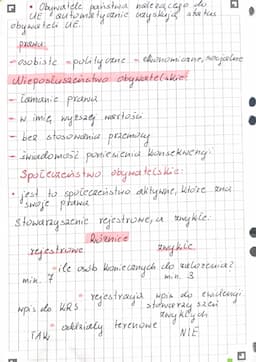 • Obywatele państwa należącego do
UE automatycznie uzyskują status
obywateli UE.
prawa:
- osobiste - polityczne - ekonomiczne, socjalne
Nieposłuszeństwo obywatelskie:
- łamanie prawa
- w imię wyższej wartości
- bez stosowania przemocy
- świadomość poniesienia konsekwencji
Społeczeństwo obywatelskie:
• jest to społeczeństwo aktywne, które zna
swoje prawa
Stowarzyszenie rejestrowe, a zwykłe:
Różnice
rejestrowe zwykłe
- ile osób koniecznych do założenia?
min. 7 min. 3
• rejestracja wpis do ewidencji
wpis do KRS stowarzyszeń
zwykłych
• oddziały terenowe
TAK NIE